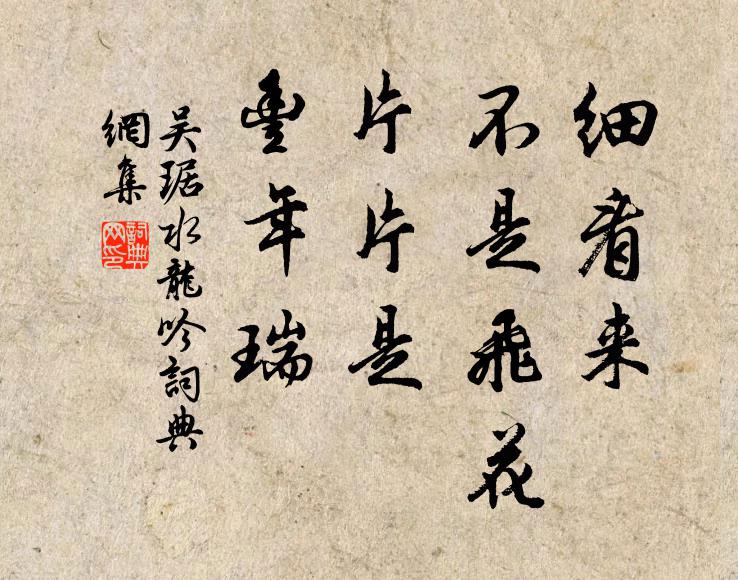 细看来
不是飛花
片片是
豐年瑞
吴琚水龍吟詞典
網集
詞典
网印